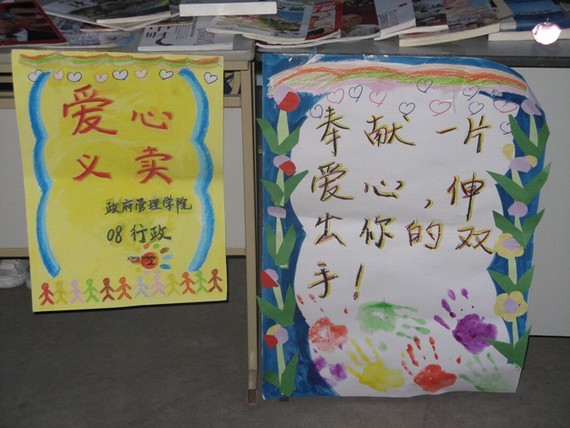 爱心
义卖
政府管理学院
08行政
奉献一片
爱心,伸
出你的双
手!